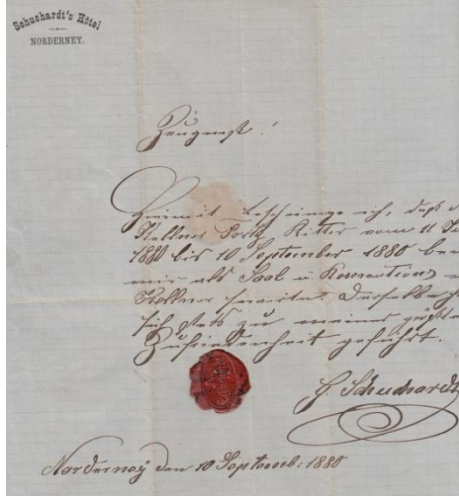 Schuchardt's Hôtel
NORDERNEY.
Zeugniß!
Hiermit bescheinige ich, daß
Kellner Ritter vom 11
1880 bis 10 September 1880 bei
mir als Saal u Restaurations
Kellner servirte. Derselbe
sich stets zu meiner größten
Zufriedenheit geführt.
Schuchardt
Norderney den 10 Septemb: 1880